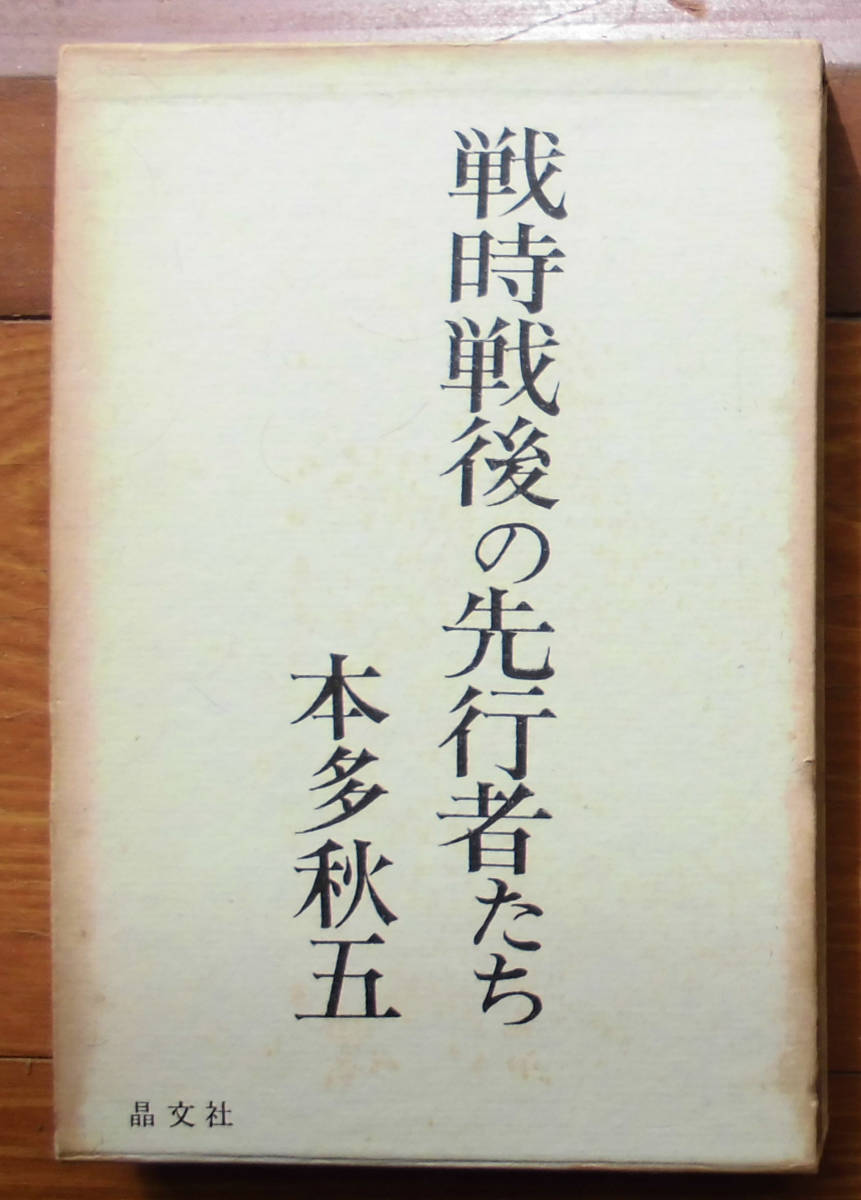 戦時戦後の先行者たち
本多秋五
晶文社